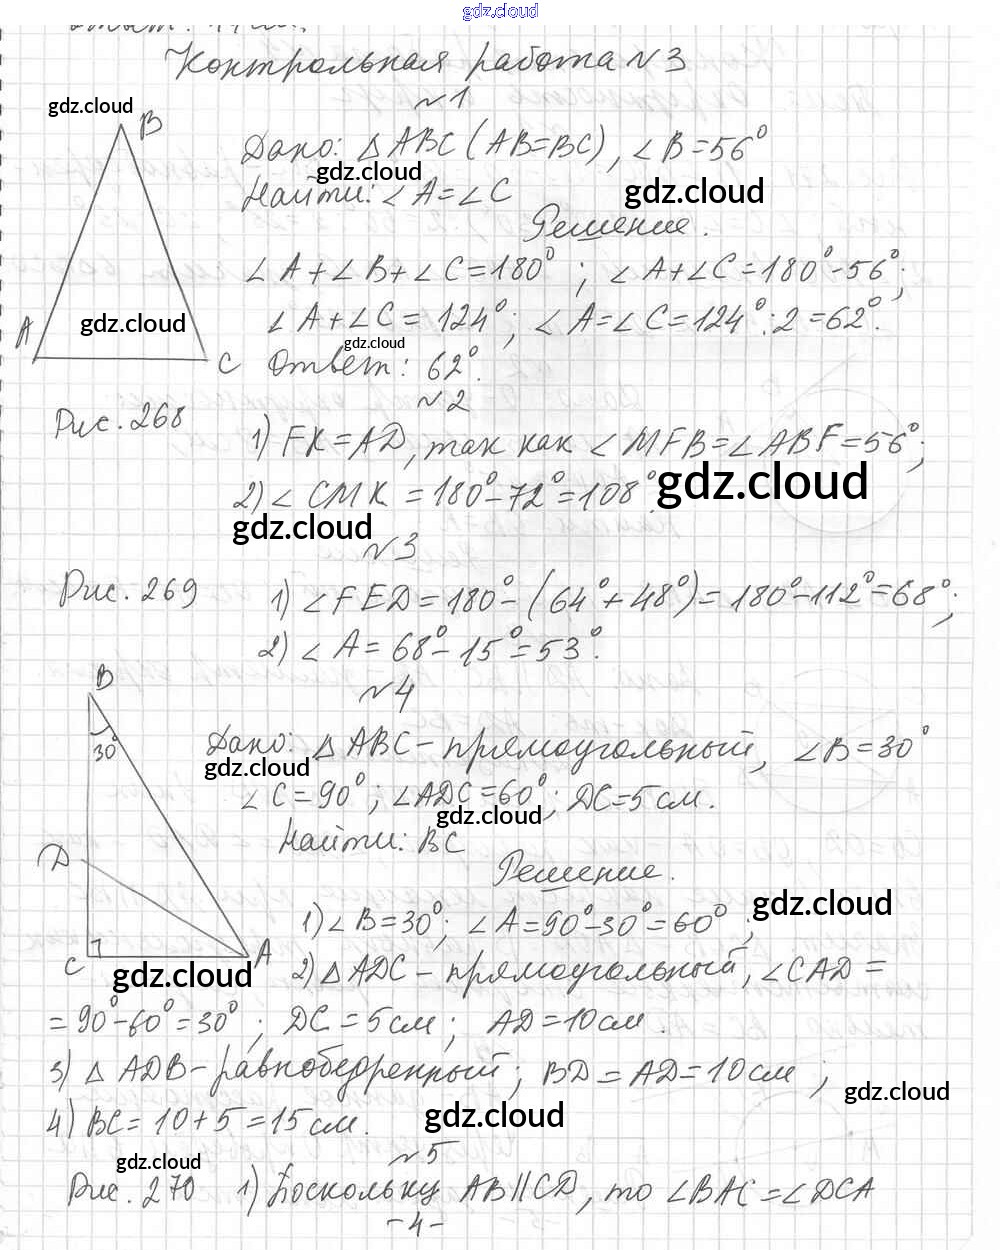 gdz.cloud
Контрольная работа №3
№1
gdz.cloud
B
Дано: △ ABC (AB=BC), ∠B=56°
gdz.cloud
Найти: ∠A=∠C
gdz.cloud
Решение.
∠A+∠B+∠C=180°; ∠A+∠C=180°-56°;
A
gdz.cloud
∠A+∠C=124°; ∠A=∠C=124°:2=62°.
gdz.cloud
C
Ответ: 62°.
№2
Рис. 268
1) FK=AD, так как ∠MFB=∠ABF=56°;
2) ∠CMK=180°-72°=108°.
gdz.cloud
gdz.cloud
№3
Рис. 269
1) ∠FED=180°-(64°+48°)=180°-112°=68°;
2) ∠A=68°-15°=53°.
№4
B
30°
Дано: △ ABC-прямоугольный, ∠B=30°
gdz.cloud
∠C=90°; ∠ADC=60°; DC=5см.
gdz.cloud
Найти: BC
D
Решение.
gdz.cloud
1) ∠B=30°; ∠A=90°-30°=60°;
C
A
gdz.cloud
2) △ ADC-прямоугольный, ∠CAD=
=90°-60°=30°; DC=5см; AD=10см.
3) △ ADB-равнобедренный; BD=AD=10см;
gdz.cloud
4) BC=10+5=15см.
gdz.cloud
№5
gdz.cloud
Рис. 270 1) Поскольку AB||CD, то ∠BAC=∠DCA
-4-